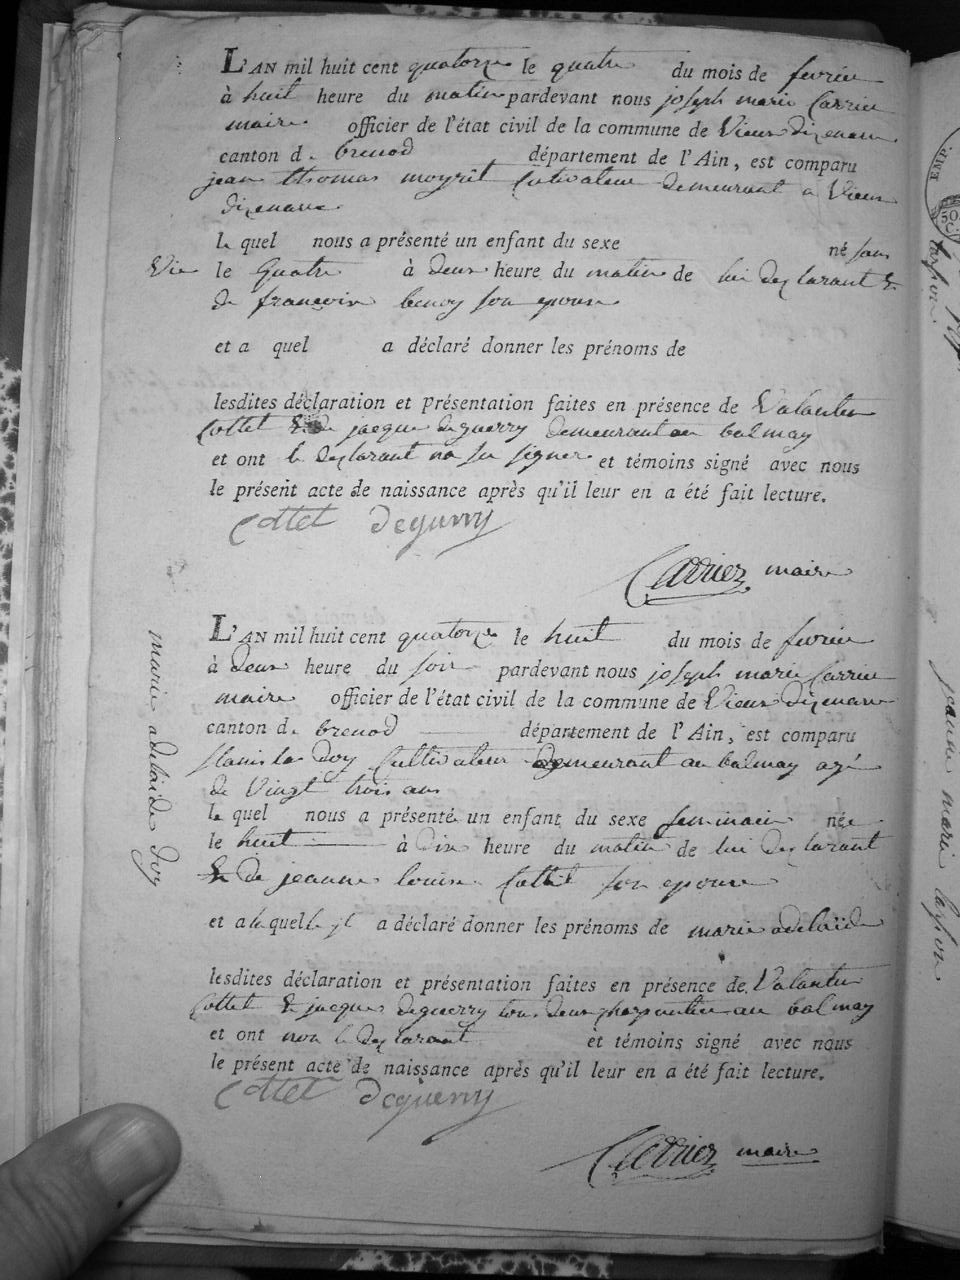 L'AN mil huit cent quatorze le quatre du mois de fevrier
à huit heure du matin pardevant nous joseph marie Carrier
maire officier de l'état civil de la commune de Vieux dizenave
canton d. brenod département de l'Ain, est comparu
jean thomas moyrit Cutivateur demeurant a Vieux
dizenave
le quel nous a présenté un enfant du sexe né sans
Vie le Quatre à deux heure du matin de lui declarant &
de françoise benoy son epouse
et a quel a déclaré donner les prénoms de
lesdites déclaration et présentation faites en présence de Valantin
Cottet & de jacque deguerry demeurant au balmay
et ont le declarant na su signer et témoins signé avec nous
le présent acte de naissance après qu'il leur en a été fait lecture.
Cottet deguerry
Carrier maire
L'AN mil huit cent quatorze le huit du mois de fevrier
à deux heure du soir pardevant nous joseph marie Carrier
maire officier de l'état civil de la commune de Vieux dizenave
canton d. brenod département de l'Ain, est comparu
stanislas Joy Cultivateur demeurant au balmay agé
de Vingt trois ans
le quel nous a présenté un enfant du sexe feminain née
le huit à dix heure du matin de lui declarant
& de jeanne louise Cottet son epouse
et a la quelle il a déclaré donner les prénoms de marie adelaïde
lesdites déclaration et présentation faites en présence de Valantin
Cottet & jacques deguerry tous deux charpentier au balmay
et ont non le declarant et témoins signé avec nous
le présent acte de naissance après qu'il leur en a été fait lecture.
Cottet deguerry
Carrier maire
marie adelaide Joy
EMP.
50
jeanne marie